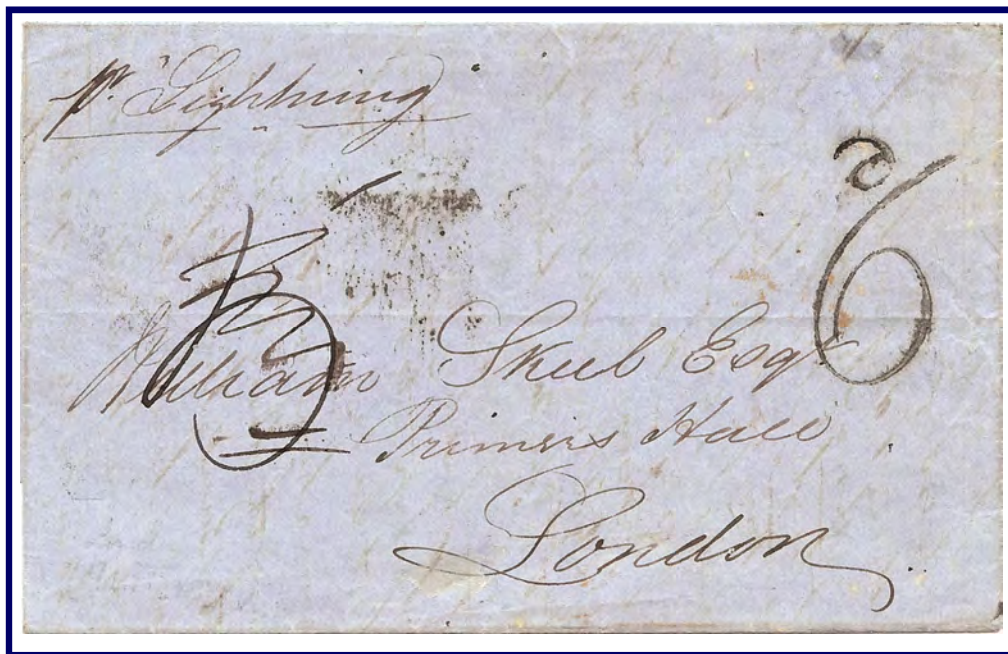 pr. "Lightning"
6
William Skeel Esqr
Hall
London